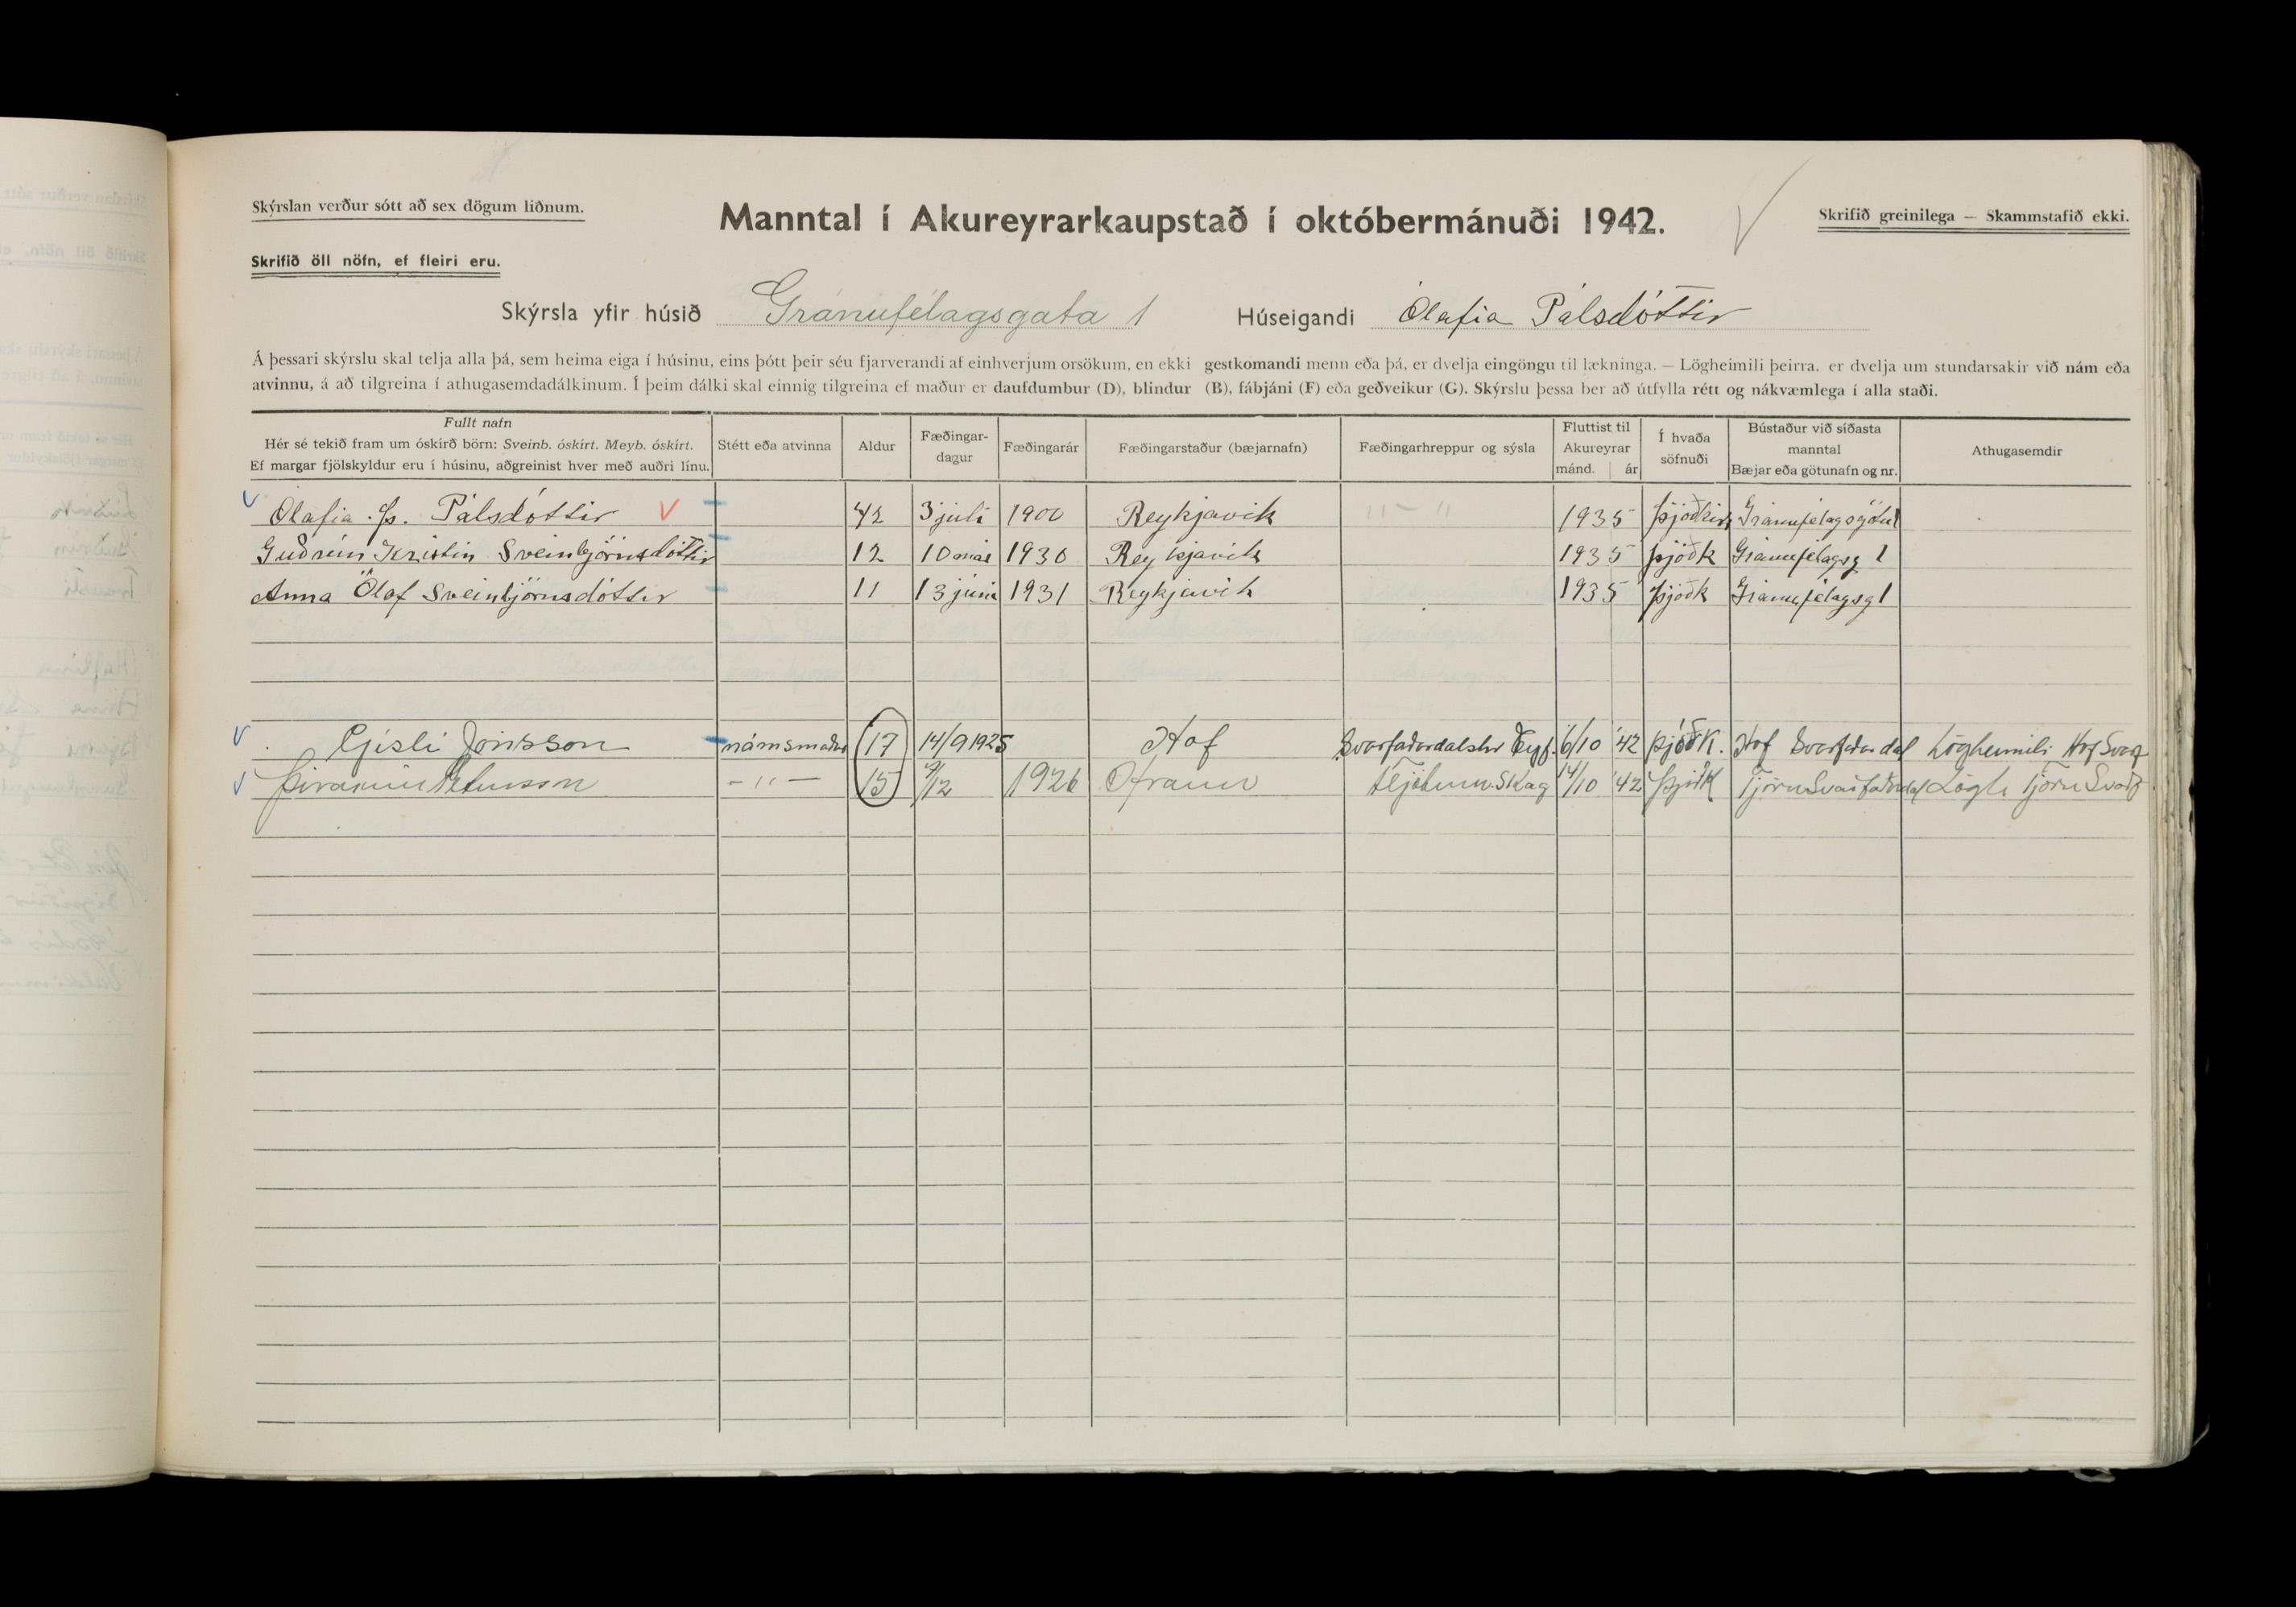 Skýrslan verður sótt að sex dögum liðnum.
Manntal í Akureyrarkaupstað í októbermánuði 1942.
Skrifið greinilega — Skammstafið ekki.
Skrifið öll nöfn, ef fleiri eru.
Skýrsla yfir húsið Gránufélagsgata 1 Húseigandi Ólafia Pálsdóttir
Á þessari skýrslu skal telja alla þá, sem heima eiga í húsinu, eins þótt þeir séu fjarverandi af einhverjum orsökum, en ekki gestkomandi menn eða þá, er dvelja eingöngu til lækninga. — Lögheimili þeirra, er dvelja um stundarsakir við nám eða
atvinnu, á að tilgreina í athugasemdadálkinum. Í þeim dálki skal einnig tilgreina ef maður er daufdumbur (D), blindur (B), fábjáni (F) eða geðveikur (G). Skýrslu þessa ber að útfylla rétt og nákvæmlega í alla staði.
Fullt nafn
Hér sé tekið fram um óskírð börn: Sveinb. óskírt. Meyb. óskírt.
Ef margar fjölskyldur eru í húsinu, aðgreinist hver með auðri línu.
Stétt eða atvinna
Aldur
Fæðingar-
dagur
Fæðingarár
Fæðingarstaður (bæjarnafn)
Fæðingarhreppur og sýsla
Fluttist til
Akureyrar
mánd. ár
Í hvaða
söfnuði
Bústaður við síðasta
manntal
Bæjar eða götunafn og nr.
Athugasemdir
Olafia Þ. Pálsdóttir 42 3 juli 1900 Reykjavik " - " 1935 Gránufélagsgötu 1
Guðrún Kristin Sveinbjörnsdóttir 12 10 mai 1930 Reykjavik 1935 þjóðk Gránufélagsg 1
Anna Ólaf Sveinbjörnsdóttir 11 13 júni 1931 Reykjavik 1935 þjóðk Gránufélagsg 1
Gísli Jónsson námsmaður 17 14/9 1925 Hof Svarfaðardalshr Eyf. 6/10 '42 þjóðk. Hof Svarfaðardal Lögheimili Hof Svarf
- " - 15 1926 Hraun Fljótum Skag 14/10 '42 þjóðk Tjörn Svarfaðardal Lögh Tjörn Svarf